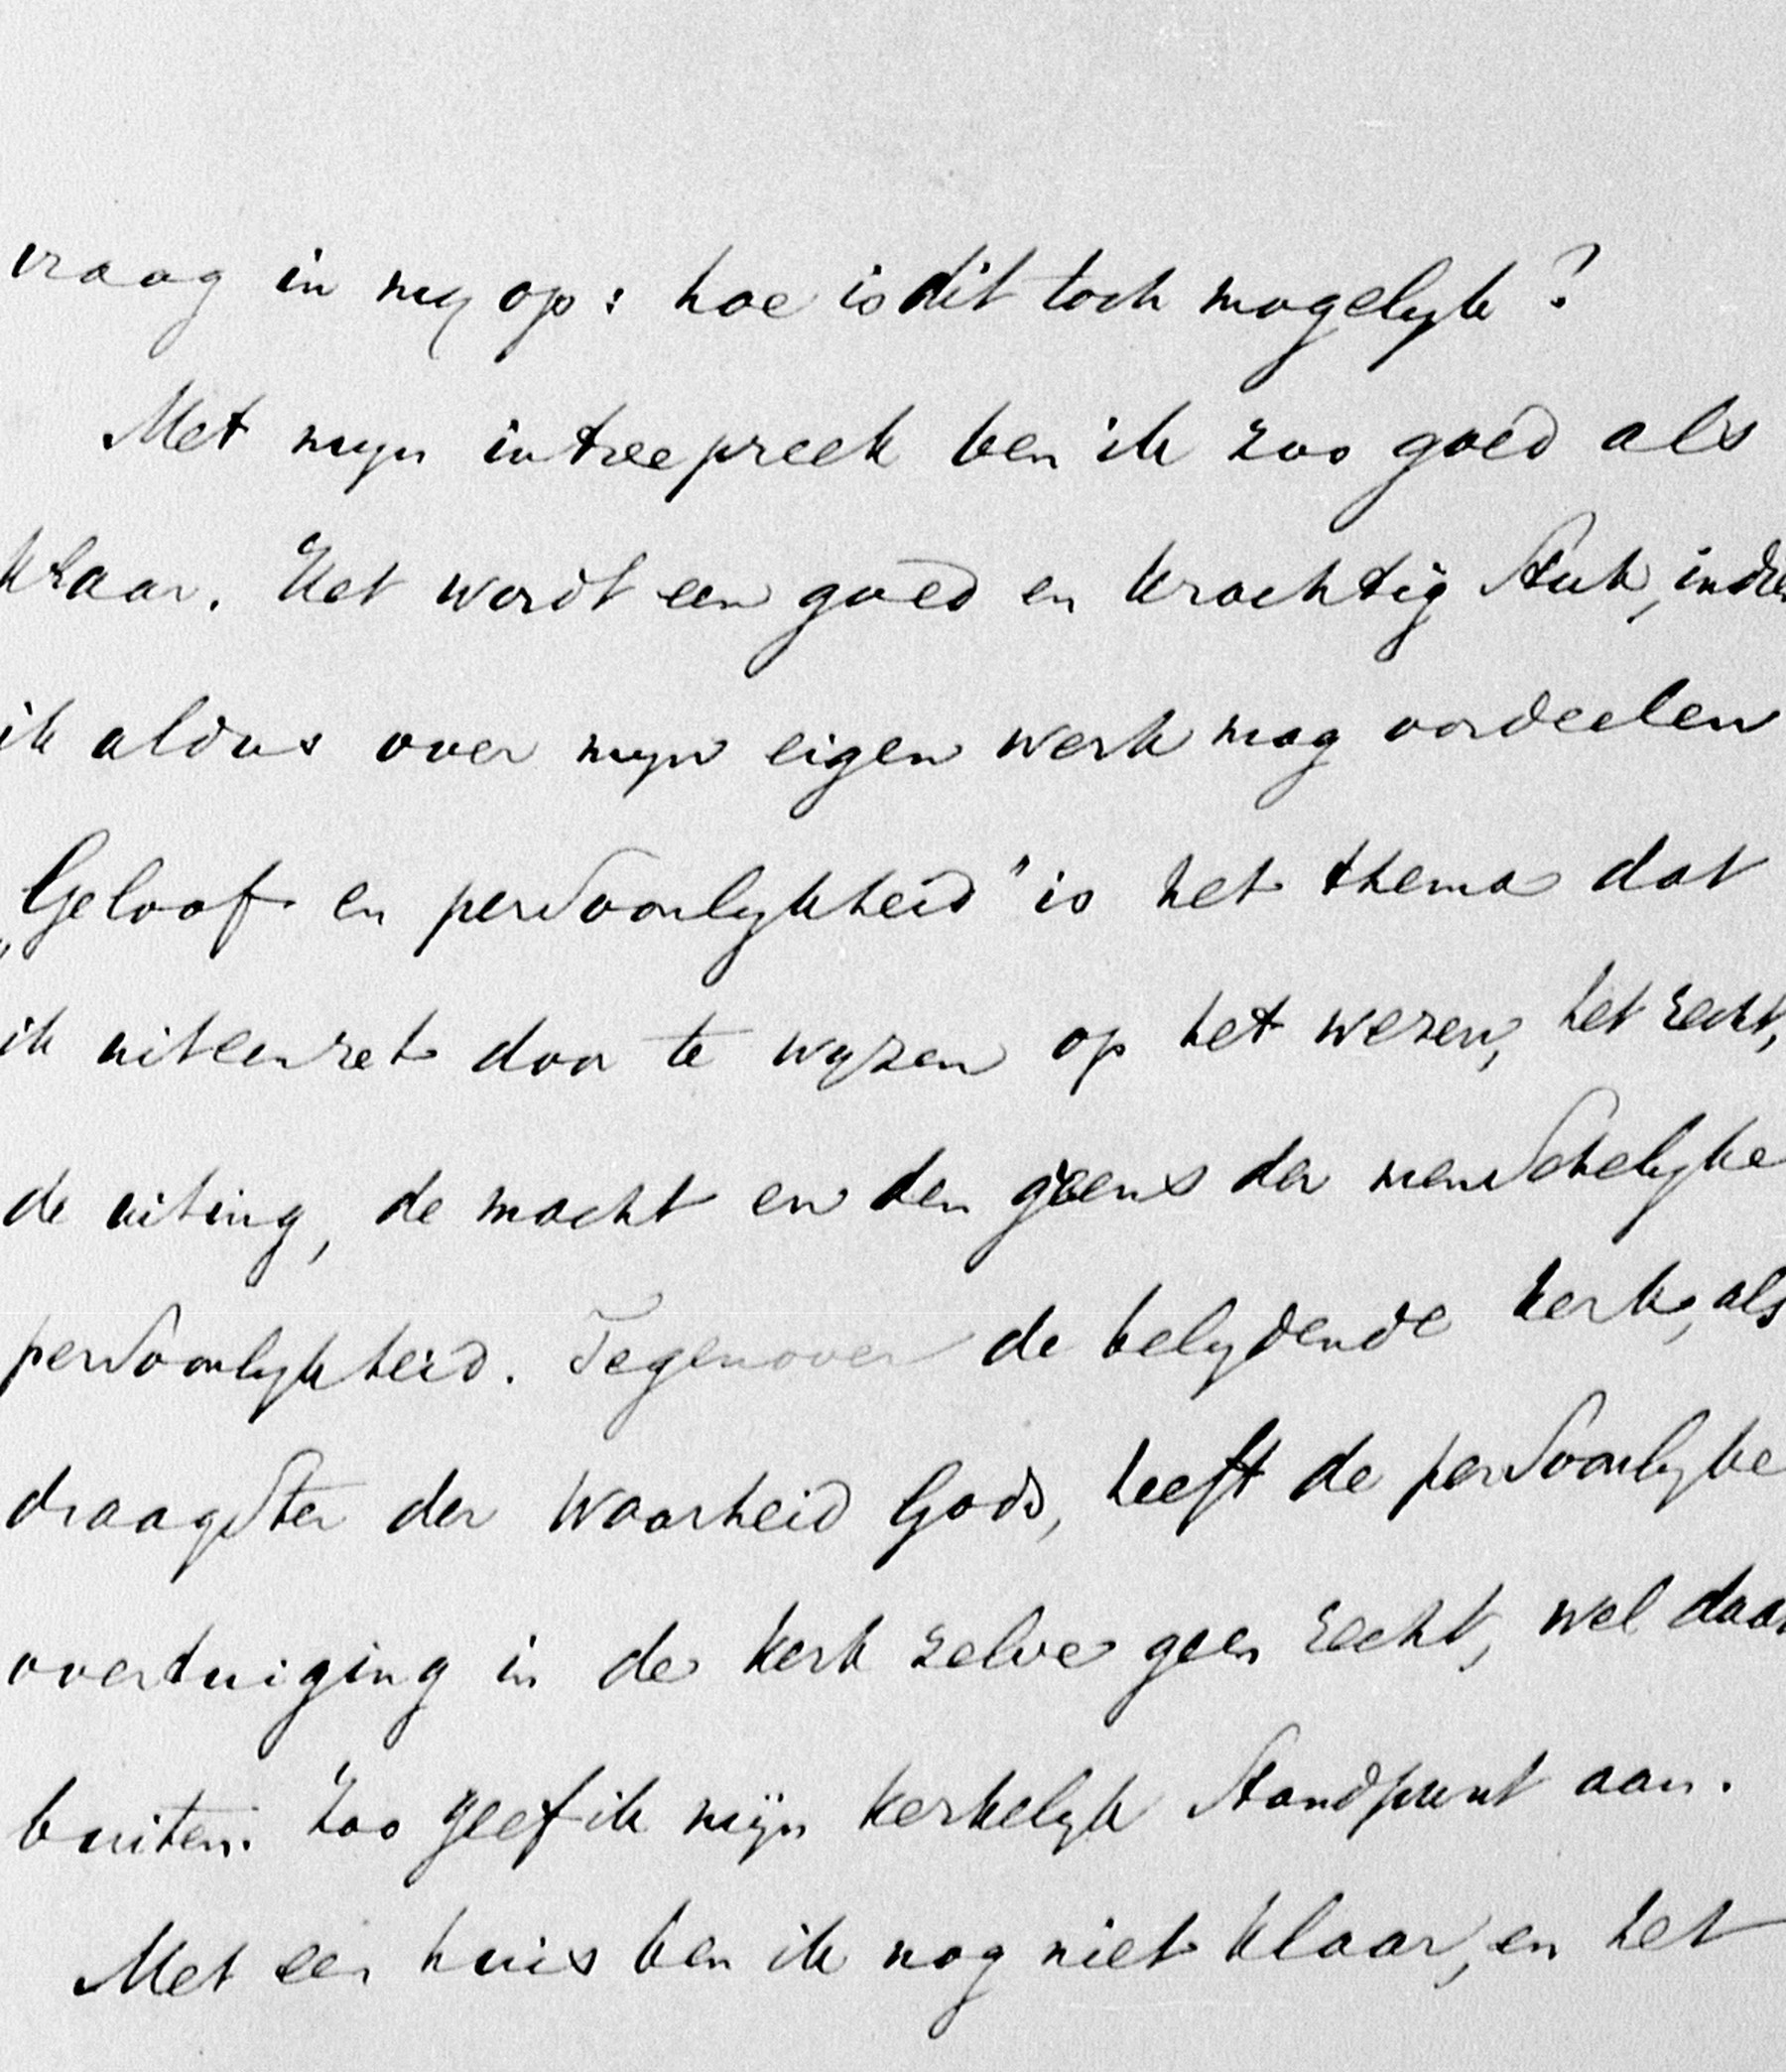 vraag in my op: hoe is dit toch mogelyk?
Met myn intreepreek ben ik zoo goed als
klaar. Het wordt een goed en krachtig stuk, indien
ik aldus over myn eigen werk mag oordeelen
„Geloof en persoonlykheid" is het thema dat
ik uiteenzet door te wyzen op het wezen, het recht,
de uiting, de macht en den grens der menschelyke
persoonlykheid. Tegenover de belydende kerk, als
draagster der Waarheid Gods, heeft de persoonlyke
overtuiging in de kerk zelve geen recht, wel daar
buiten. Zoo geef ik mijn kerkelyk standpunt aan.
Met een huis ben ik nog niet klaar, en het